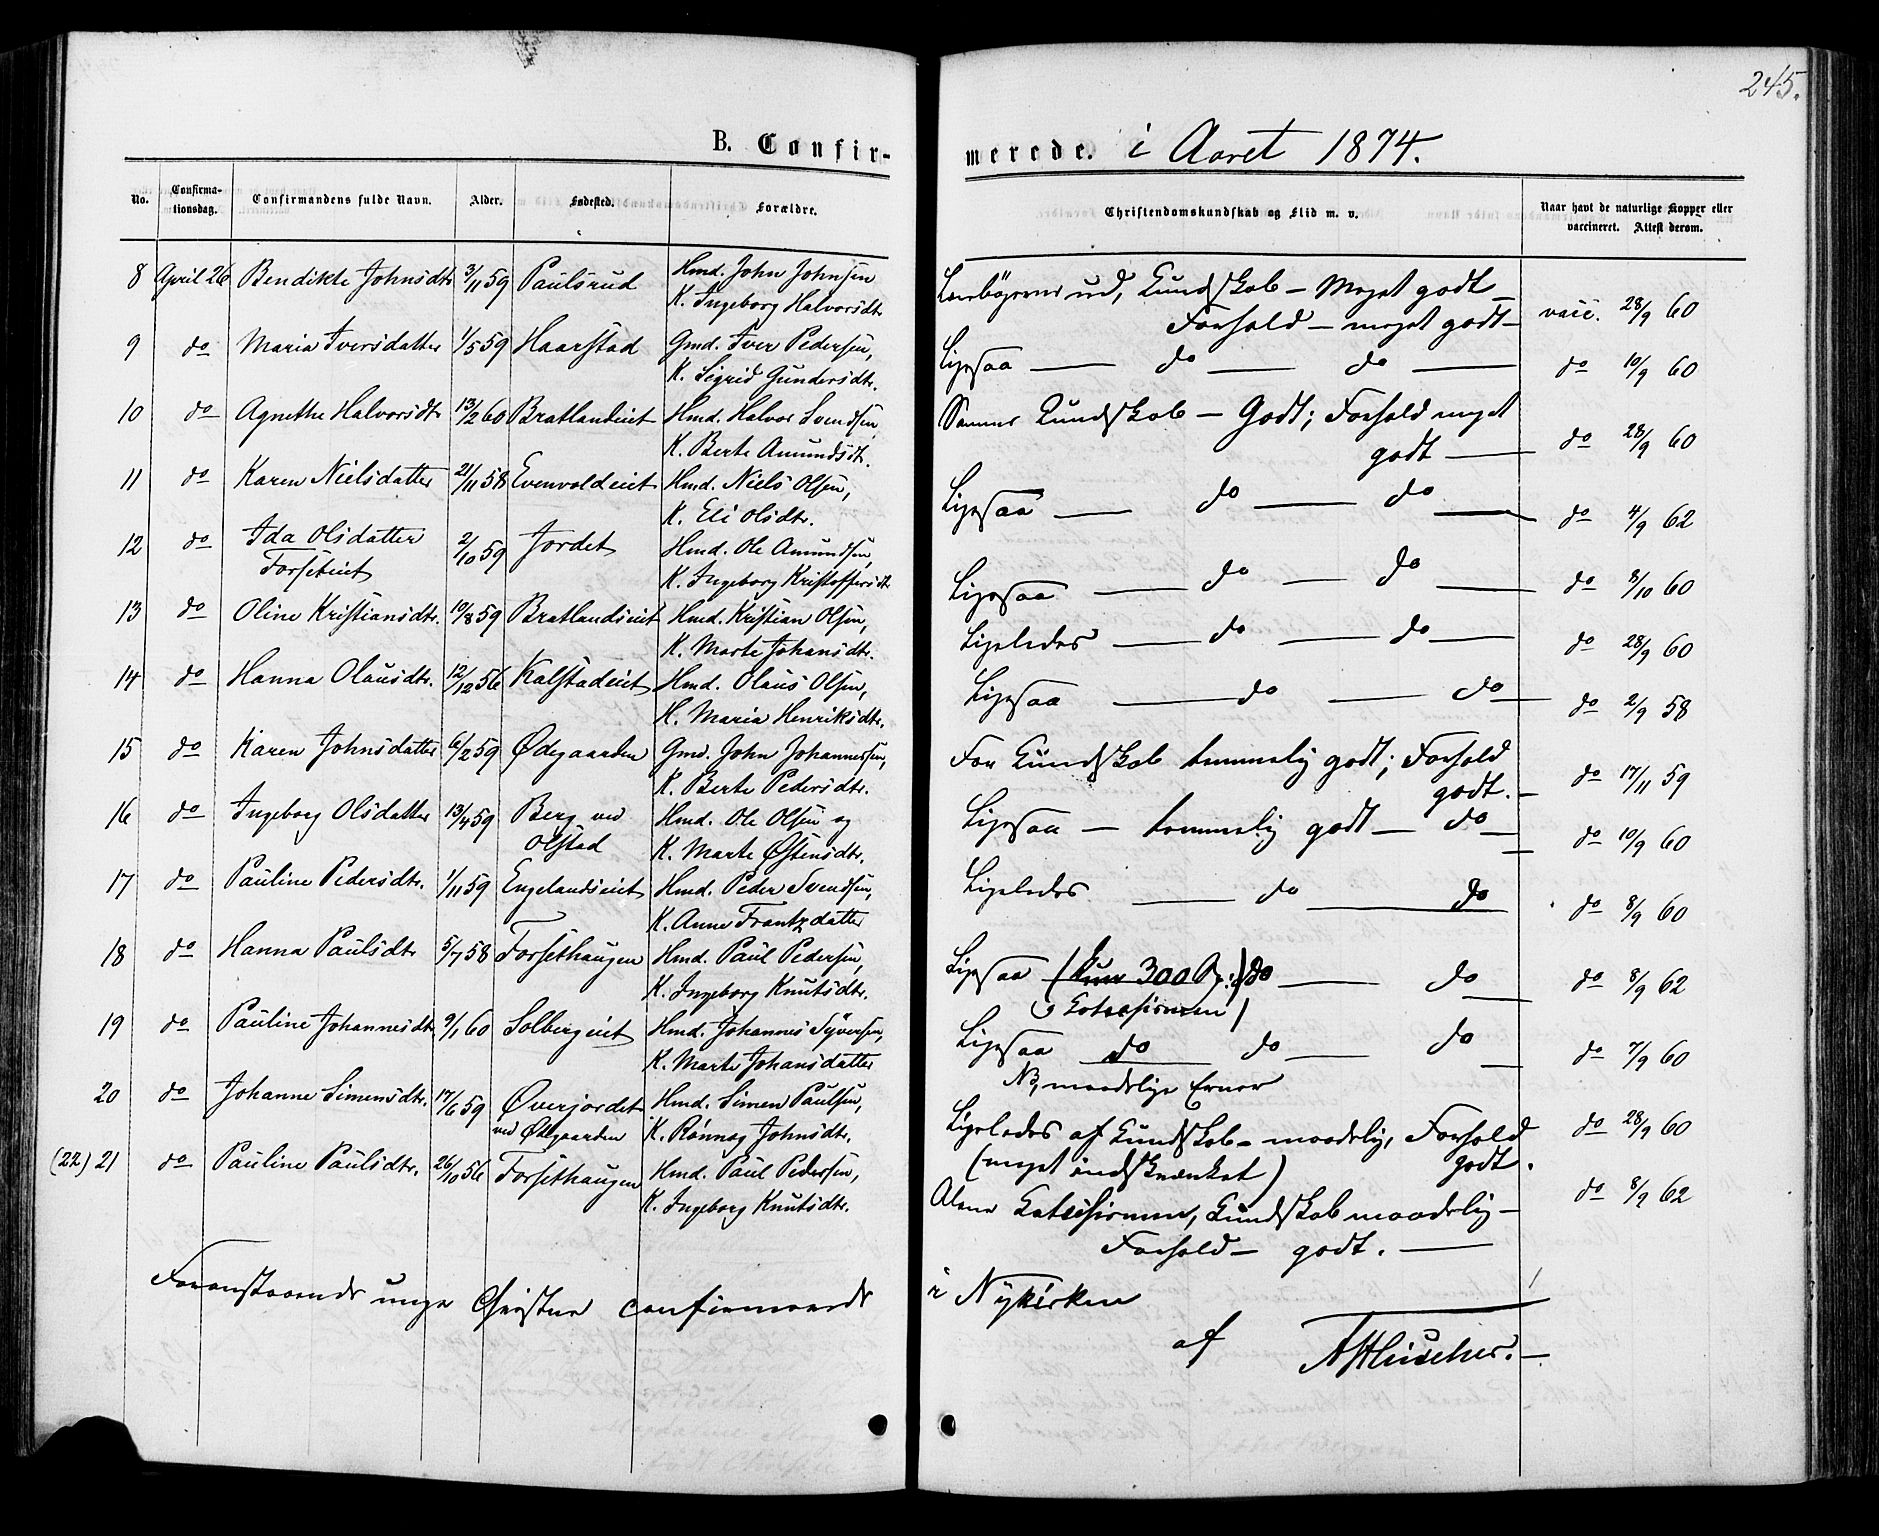 245.
B. Confirmerede. i Aaret 1874.
No. Confirmationsdag. Confirmandens fulde Navn. Alder. Fødested. Forældre. Christendomskundskab og Flid m. v. Naar havt de naturlige Kopper eller vaccineret. Attest derom.
8 April 26 Bendikte Johnsdtr 3/11 59 Paulsrud Hmd. John Johnsen
K. Ingeborg Halvorsdtr ud, Kundskab — Meget godt —
Forhold — meget godt — vacc. 28/9 60
9 do Maria Iversdatter 1/5 59 Haarstad Gmd. Iver Pedersen,
K. Sigrid Gundersdtr. Ligesaa — do — do — do 10/9 60
10 do Agnethe Halvorsdtr 13/2 60 Bratlandeiet Hmd. Halvor Svendsen,
K. Berte Amundsdtr. Samme Kundskab — Godt; Forhold meget
godt — do 28/9 60
11 do Karen Nielsdatter 21/11 58 Evenvoldeiet Hmd. Niels Olsen,
K. Eli Olsdtr. Ligesaa — do — do — do 4/9 62
12 do Ida Olsdatter
Forseteiet 2/10 59 Jordet Hmd. Ole Amundsen,
K. Ingeborg Kristoffersdtr Ligesaa — do — do — do 8/10 60
13 do Oline Kristiansdtr. 10/8 59 Bratlandseiet Hmd. Kristian Olsen,
K. Marte Johansdtr. Ligeledes — do — do — do 28/9 60
14 do Hanna Olausdtr. 12/12 56 Kalstadeiet Hmd. Olaus Olsen,
K. Maria Henriksdtr. Ligesaa — do — do — do 2/9 58
15 do Karen Johnsdatter 6/2 59 Ødegaarden Gmd. John Johannessen,
K. Berte Pedersdtr. For Kundskab temmelig godt; Forhold
godt. — do 17/11 59
16 do Ingeborg Olsdatter 13/4 59 Berg ved
Olstad Hmd. Ole Olsen og
K. Marte Østensdtr. Ligesaa — temmelig godt — do — do 10/9 60
17 do Pauline Pedersdtr. 1/11 59 Engelandseiet Hmd. Peder Svendsen,
K. Anne Frantzdatter Ligeledes — do — do do 8/9 60
18 do Hanna Paulsdtr 5/7 58 Forsethaugen Hmd. Paul Pedersen,
K. Ingeborg Knutsdtr. Ligesaa (kun 300 Sp:) do — do — do 8/9 62
19 do Pauline Johannesdtr 9/1 60 Solbergeiet Hmd. Johannes Syversen,
K. Marte Johansdatter Ligesaa do do — do — do 7/9 60
20 do Johanne Simensdtr. 17/6 59 Øverjordet
ved Ødegaarden Hmd. Simen Paulsen,
K. Rønnog Johnsdtr. NB, maadelige Evner
Ligeledes af Kundskab — maadelig, Forhold
(meget indskrænket) godt. do 28/9 60
(22) 21 do Pauline Paulsdtr. 26/10 56 Forsethaugen Hmd. Paul Pedersen,
K. Ingeborg Knutsdtr. Alene Katechismen, Kundskab maadelig —
Forhold — godt. — do 8/9 62
Foranstaaende unge Christne confirmerede i Nykirken
af